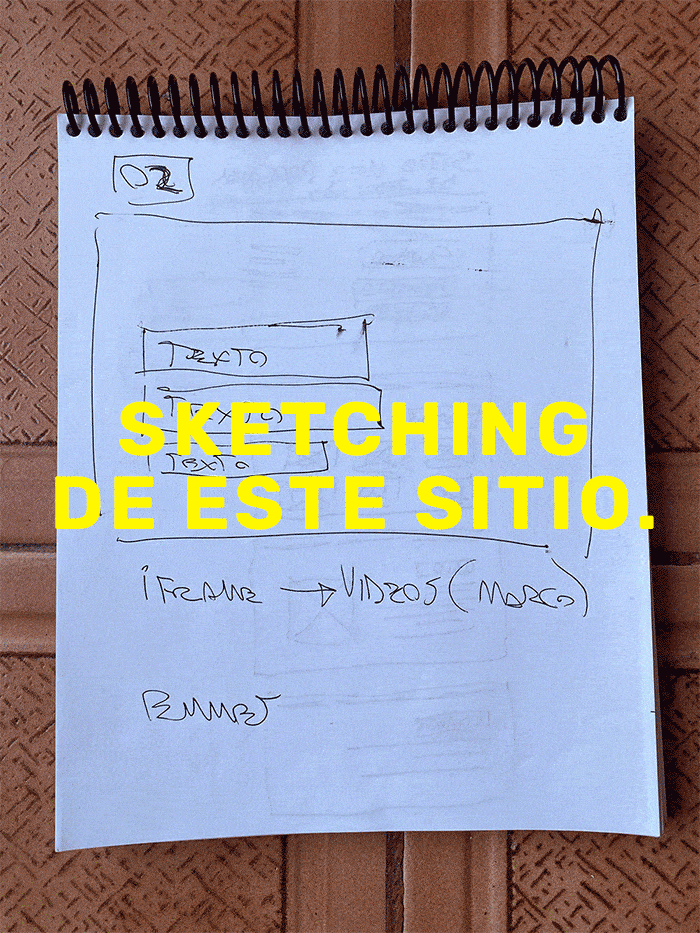 02
TEXTO
TEXTO
TEXTO
SKETCHING
DE ESTE SITIO.
iFRAME → VIDEOS (MARCO)